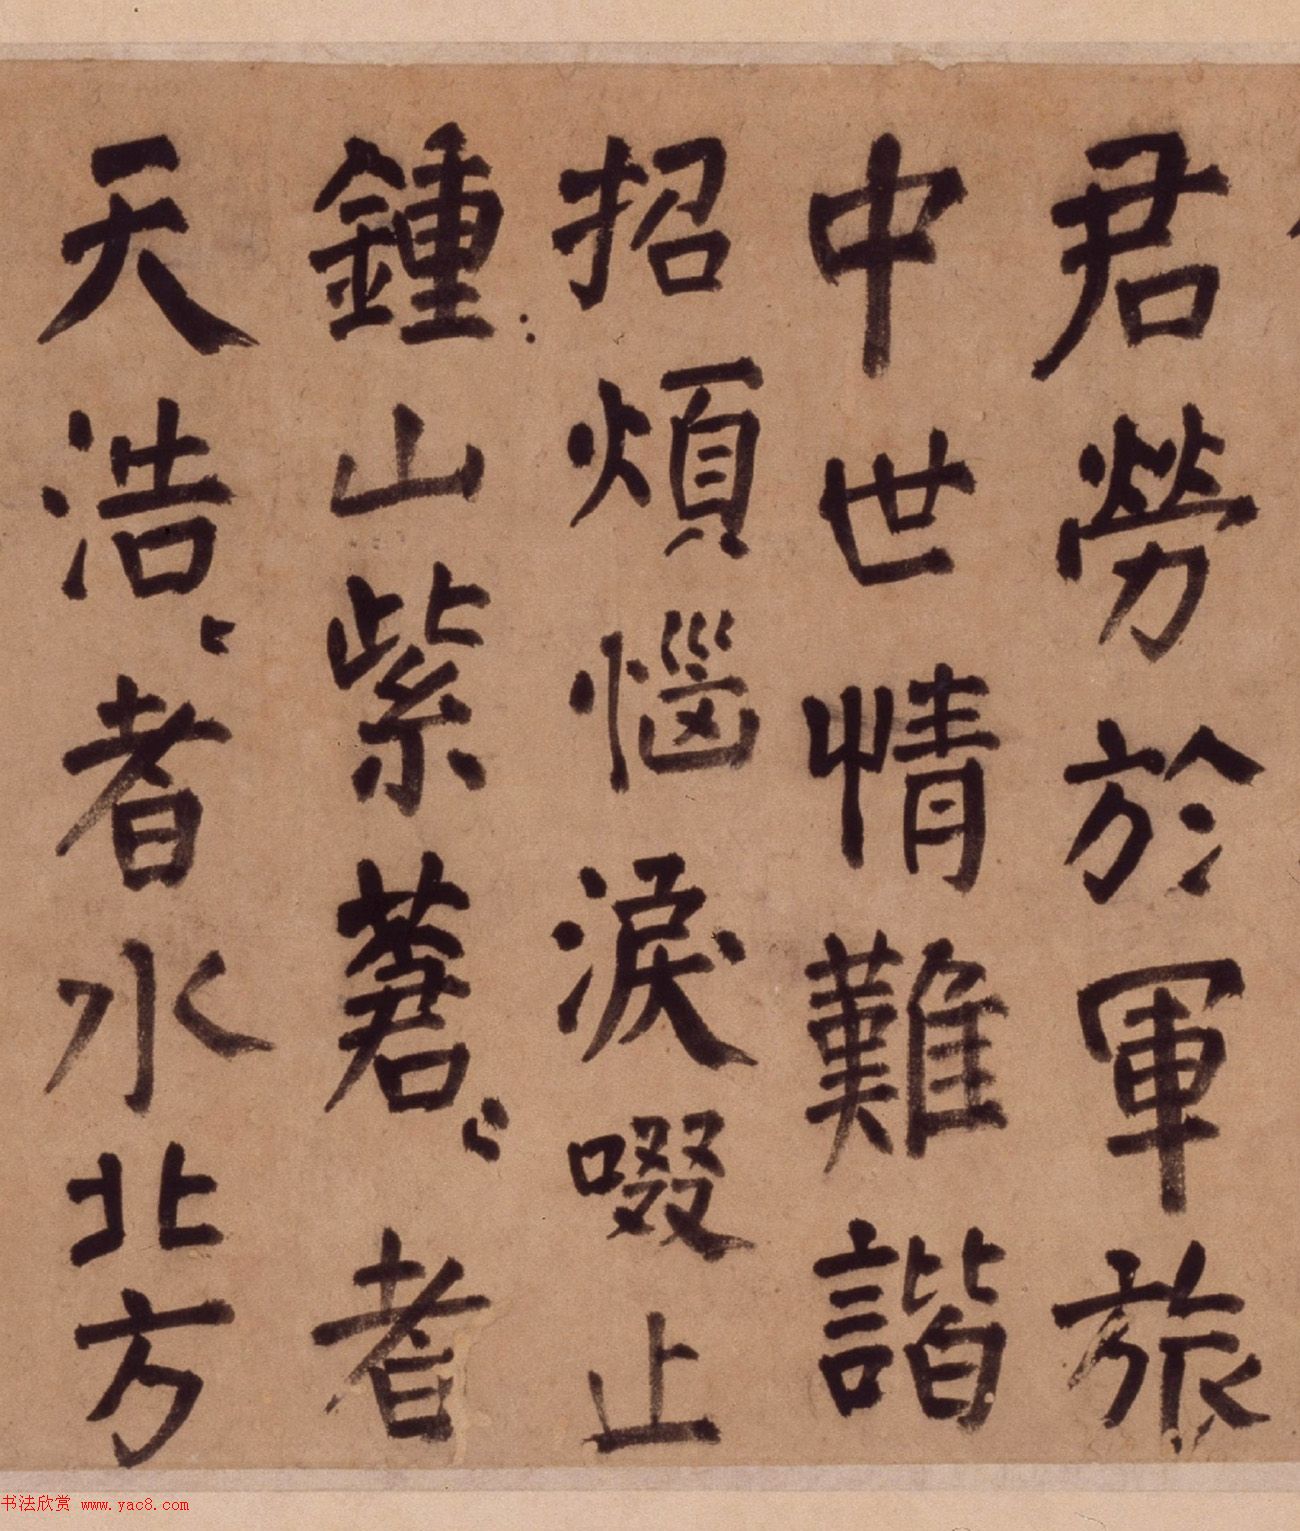 君勞於軍旅
中世情難諧
招煩惱淚啜止
鍾山紫蓊〻者
天浩〻者水北方
书法欣赏 www.yac8.com